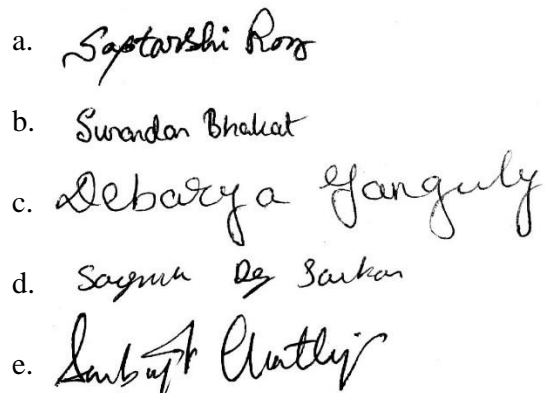 a. Saptarshi Roy
b. Surandan Bhakat
c. Debarya Ganguly
d. De Sarkar
e. Chatterji